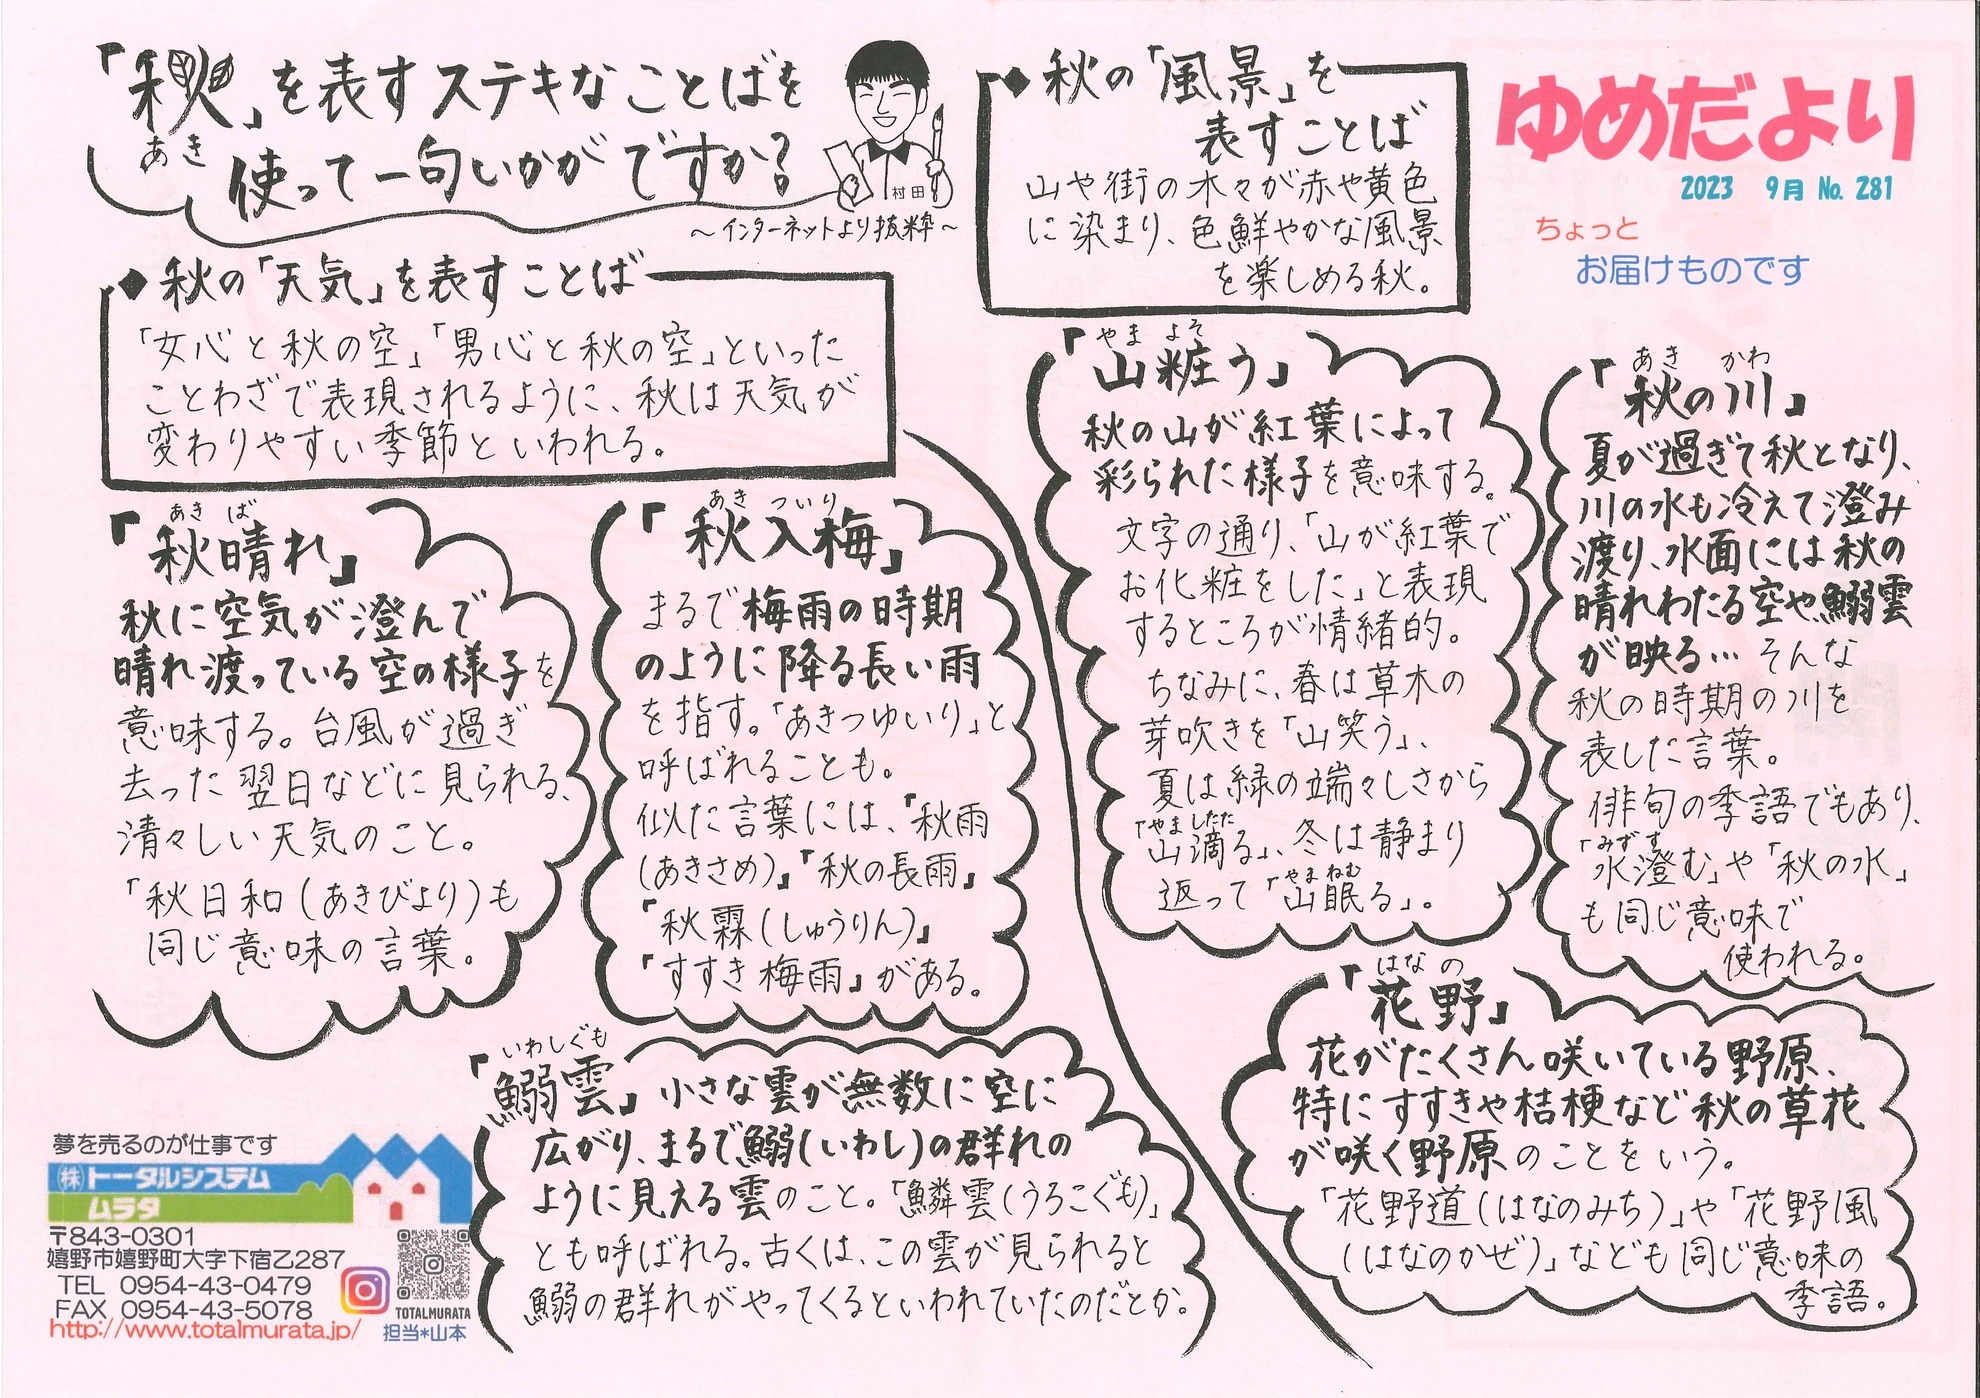 ゆめだより
2023 9月 No. 281
ちょっと
お届けものです
「秋」を表すステキなことばを
あき
使って一句いかがですか?
村田
～インターネットより抜粋～
◆秋の「天気」を表すことば
「女心と秋の空」「男心と秋の空」といった
ことわざで表現されるように、秋は天気が
変わりやすい季節といわれる。
あき ば
「秋晴れ」
秋に空気が澄んで
晴れ渡っている空の様子を
意味する。台風が過ぎ
去った翌日などに見られる、
清々しい天気のこと。
「秋日和(あきびより)も
同じ意味の言葉。
あき ついり
「秋入梅」
まるで梅雨の時期
のように降る長い雨
を指す。「あきつゆいり」と
呼ばれることも。
似た言葉には、『秋雨
(あきさめ)』『秋の長雨』
『秋霖(しゅうりん)』
『すすき梅雨』がある。
いわしぐも
「鰯雲」小さな雲が無数に空に
広がり、まるで鰯(いわし)の群れの
ように見える雲のこと。「鱗雲(うろこぐも)」
とも呼ばれる。古くは、この雲が見られると
鰯の群れがやってくるといわれていたのだとか。
◆秋の「風景」を
表すことば
山や街の木々が赤や黄色
に染まり、色鮮やかな風景
を楽しめる秋。
やま よそ
「山粧う」
秋の山が紅葉によって
彩られた様子を意味する。
文字の通り、「山が紅葉で
お化粧をした」と表現
するところが情緒的。
ちなみに、春は草木の
芽吹きを「山笑う」、
夏は緑の端々しさから
やましたた
「山滴る」、冬は静まり
やまねむ
返って「山眠る」。
あき かわ
「秋の川」
夏が過ぎて秋となり、
川の水も冷えて澄み
渡り、水面には秋の
晴れわたる空や鰯雲
が映る…そんな
秋の時期の川を
表した言葉。
俳句の季語でもあり、
みずす
「水澄む」や「秋の水」
も同じ意味で
使われる。
はなの
「花野」
花がたくさん咲いている野原、
特にすすきや桔梗など秋の草花
が咲く野原のことをいう。
「花野道(はなのみち)」や「花野風
(はなのかぜ)」なども同じ意味の
季語。
夢を売るのが仕事です
㈱トータルシステム
ムラタ
〒843-0301
嬉野市嬉野町大字下宿乙287
TEL 0954-43-0479
FAX 0954-43-5078
http://www.totalmurata.jp/
TOTALMURATA
担当*山本